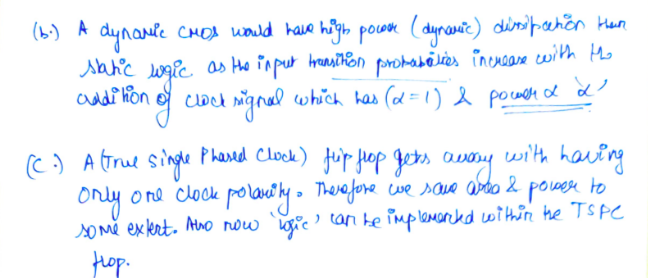 (b.) A dynamic CMOS would have high power (dynamic) dissipation than
static logic as the input transition probabilities increase with the
addition of clock signal which has (α=1) & power α 'α'
(C.) A (True Single Phased Clock) flip flop gets away with having
only one clock polarity. Therefore we save area & power to
some extent. Also now 'logic' can be implemented within the TSPC
flop.